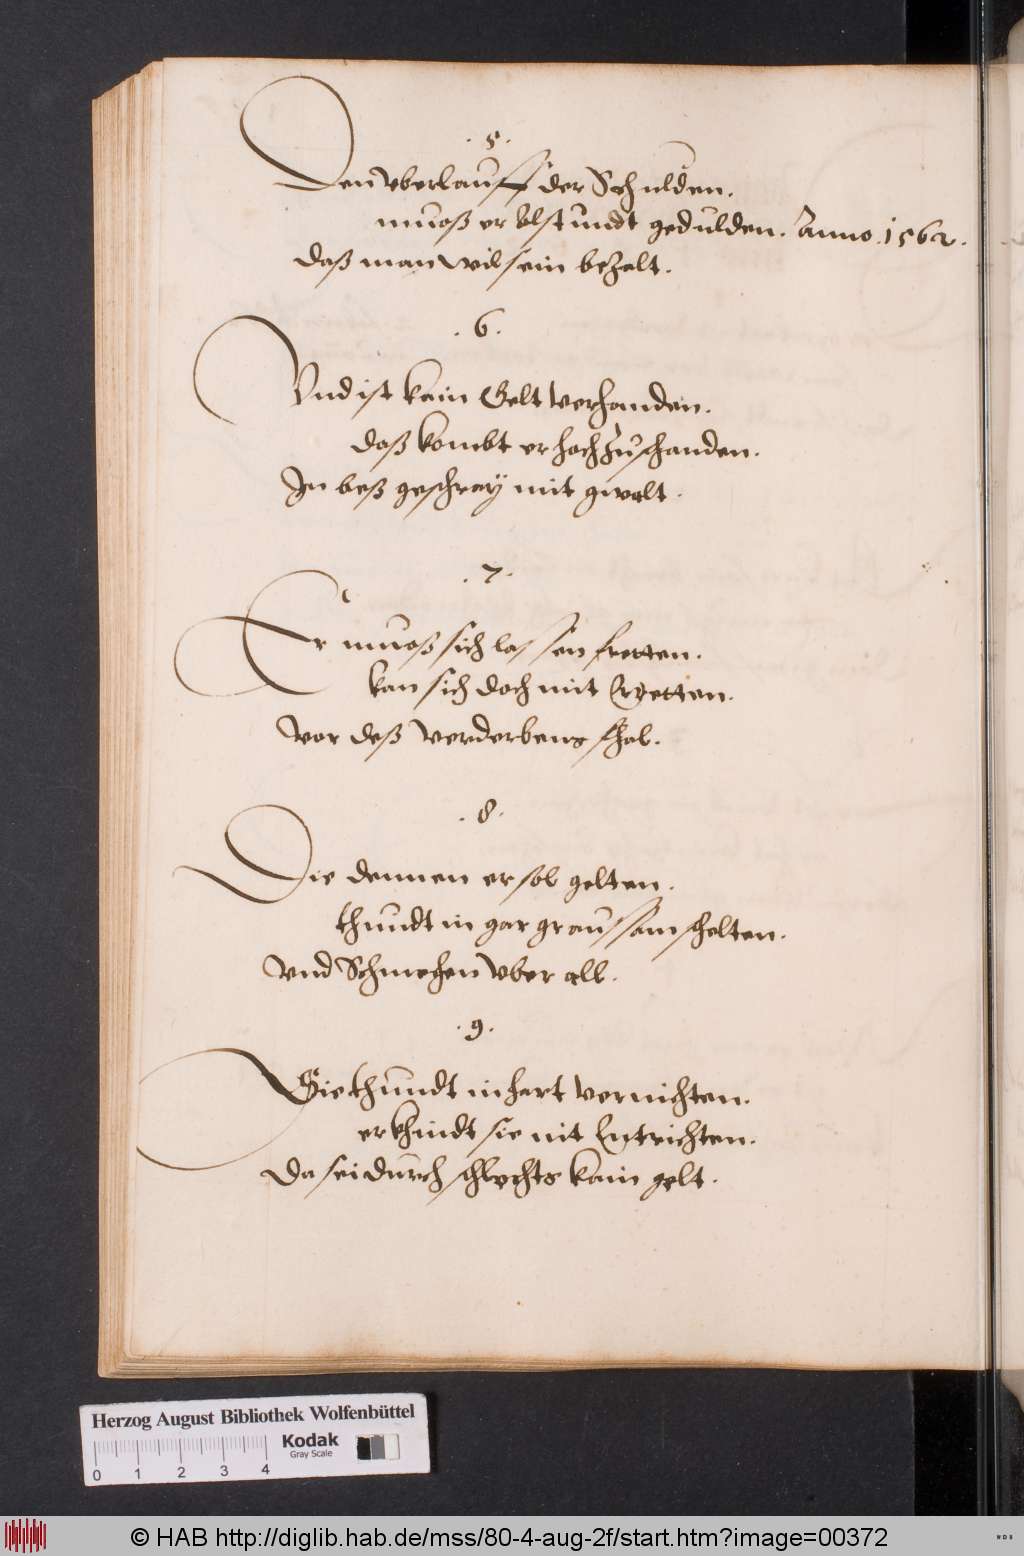 . 5 .
Den vberlauff der Schulden.
muoß er Alst undt gedulden. Anno. 1562.
daß man wil sein bezalt.
. 6 .
Vnd ist kain Gelt verhanden.
daß kombt er hoch zu schanden.
In beß geschray mit gwalt.
. 7 .
Er muoß sich lassen fretten.
kan sich doch nit Erretten.
vor deß verderbens fhal.
. 8 .
Die dennen er sol gelten.
thundt in gar graussam schelten.
vnd Schmechen vber all.
. 9 .
Sie thundt in hart vernichten.
er khindt sie nit Entrichten.
Da sei durch schlechts kain gelt.
Herzog August Bibliothek Wolfenbüttel
Kodak
Gray Scale
0 1 2 3 4
© HAB http://diglib.hab.de/mss/80-4-aug-2f/start.htm?image=00372